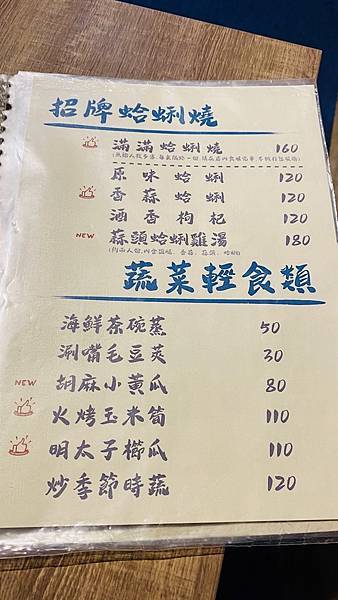 招牌蛤蜊燒
滿滿蛤蜊燒 160
原味蛤蜊 120
香蒜蛤蜊 120
酒香枸杞 120
NEW 蒜頭蛤蜊雞湯 180
蔬菜輕食類
海鮮茶碗蒸 50
涮嘴毛豆莢 30
NEW 胡麻小黃瓜 80
火烤玉米筍 110
明太子櫛瓜 110
炒季節時蔬 120